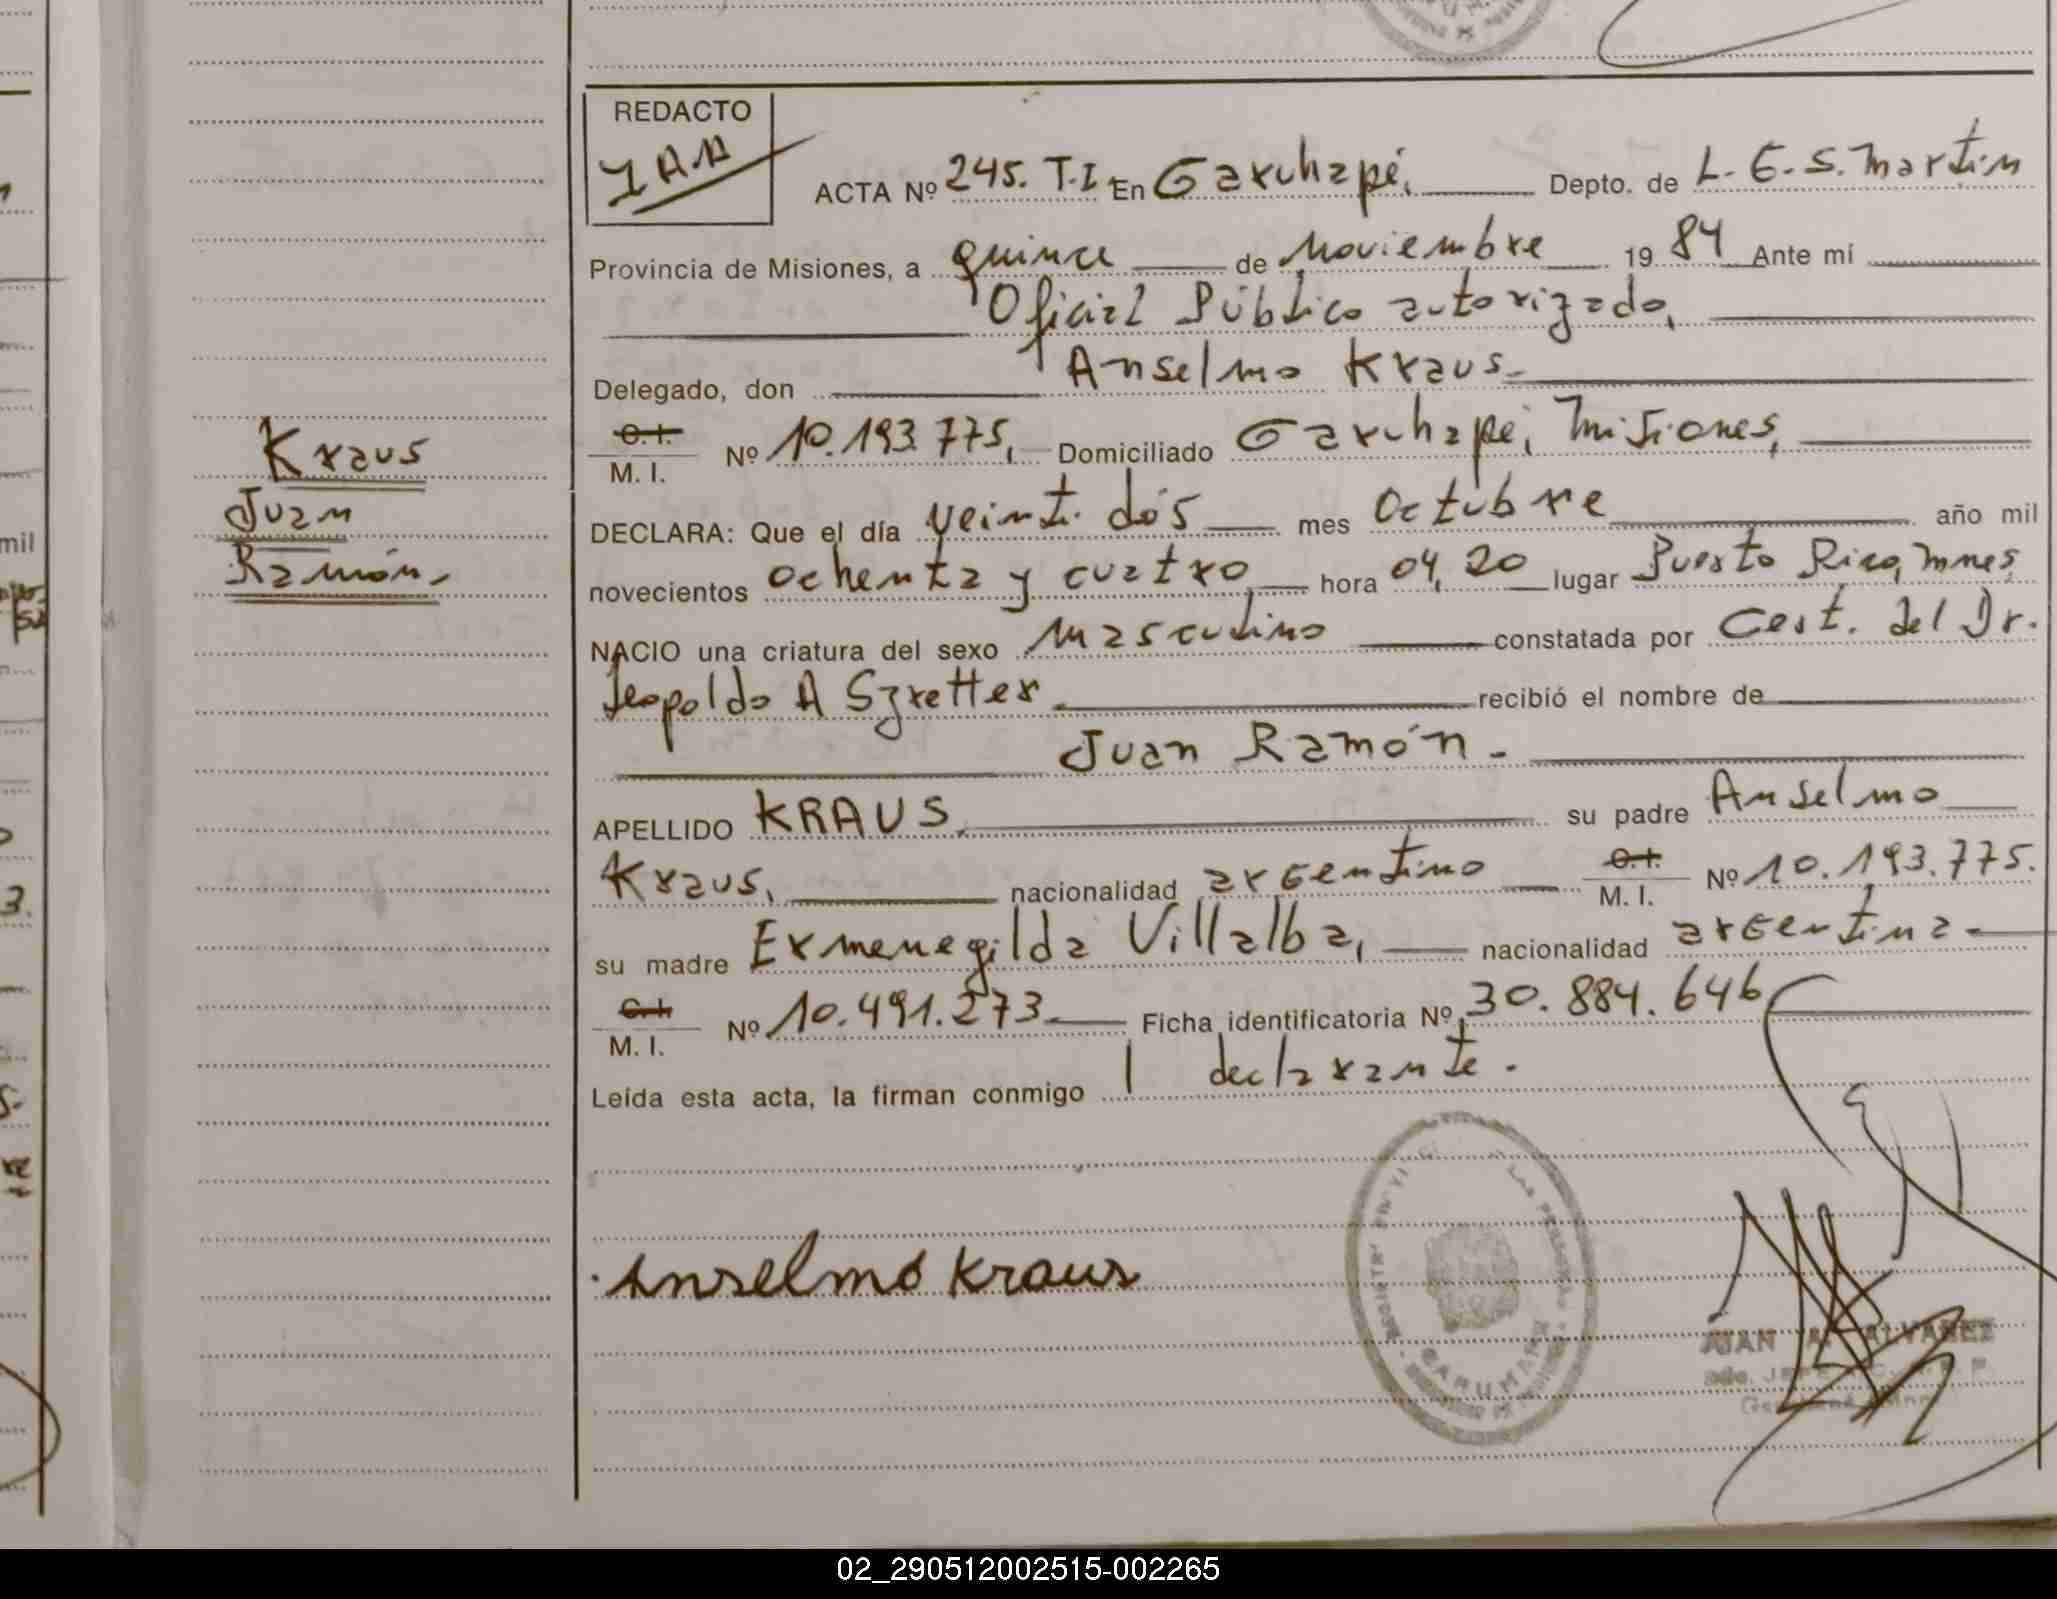 REDACTO
JAA
ACTA Nº 245. T.I. En Garuhapé, Depto. de L. G. S. Martin
Provincia de Misiones, a quince de Noviembre 19 84 Ante mí
Oficial Público autorizado,
Delegado, don Anselmo Kraus.
C.I.
M. I. Nº 10.193.775, Domiciliado Garuhapé, Misiones,
Kraus
Juan
Ramón.
DECLARA: Que el día veinti dós mes Octubre año mil
novecientos ochenta y cuatro hora 04,20 lugar Puerto Rico, Mnes,
NACIO una criatura del sexo masculino constatada por Cert. del Dr.
Leopoldo A Szretter. recibió el nombre de
Juan Ramón.
APELLIDO KRAUS, su padre Anselmo
Kraus, nacionalidad argentino C.I. M. I. Nº 10.193.775.
su madre Ermenegilda Villalba, nacionalidad argentina
C.I.
M. I. Nº 10.491.273 Ficha identificatoria Nº 30.884.646
Leída esta acta, la firman conmigo l declarante.
Anselmo Kraus
GARUHAPÉ
JUAN A. ALVAREZ
mil
3.
02_290512002515-002265